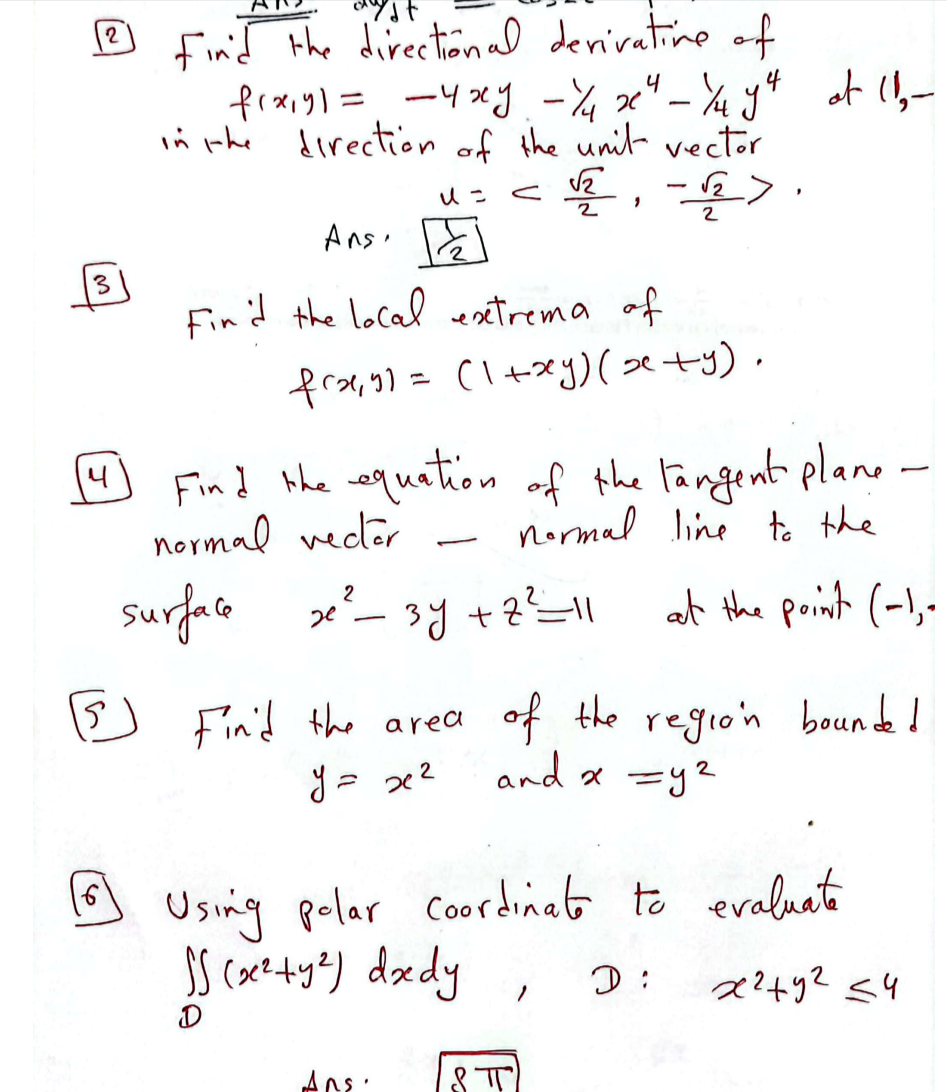 2 Find the directional derivative of
f(x,y) = -4xy - 1/4 x^4 - 1/4 y^4 at (1,-
in the direction of the unit vector
u = < √2/2 , -√2/2 > .
Ans. 1/2
3
Find the local extrema of
f(x,y) = (1+xy)(x+y) .
4 Find the equation of the tangent plane -
normal vector - normal line to the
surface x² - 3y + z² = 11 at the point (-1,-
5 Find the area of the region bounded
y = x² and x = y²
6 Using polar coordinate to evaluate
∬ (x²+y²) dxdy , D: x²+y² ≤ 4
D
Ans. 8π